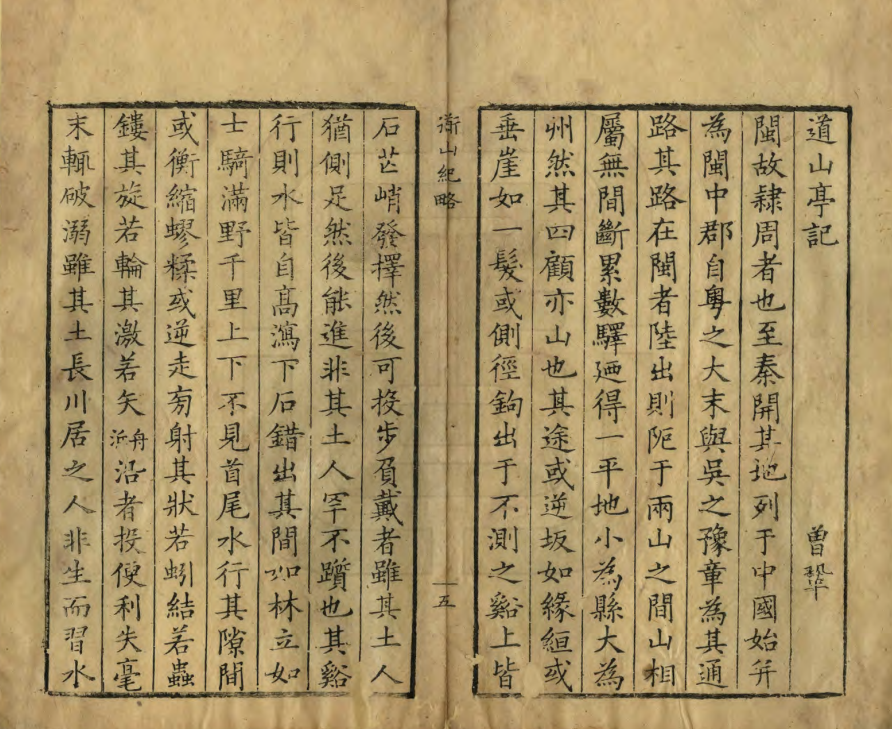 道山亭記 曾鞏
閩故隷周者也至秦開其地列于中國始并
為閩中郡自粵之大末與吳之豫章為其通
路其路在閩者陸出則阨于兩山之間山相
屬無間斷累數驛廼得一平地小為縣大為
州然其四顧亦山也其途或逆坂如緣絙或
垂崖如一髮或側徑鉤出于不測之谿上皆
衜山紀略 一五
石芒峭發擇然後可投步負戴者雖其土人
猶側足然後能進非其土人罕不躓也其谿
行則水皆自高瀉下石錯出其間如林立如
士騎滿野千里上下不見首尾水行其隙間
或衡縮蟉糅或逆走旁射其狀若蚓結若蟲
鏤其旋若輪其激若矢舟泝沿者投便利失毫
末輒破溺雖其土長川居之人非生而習水